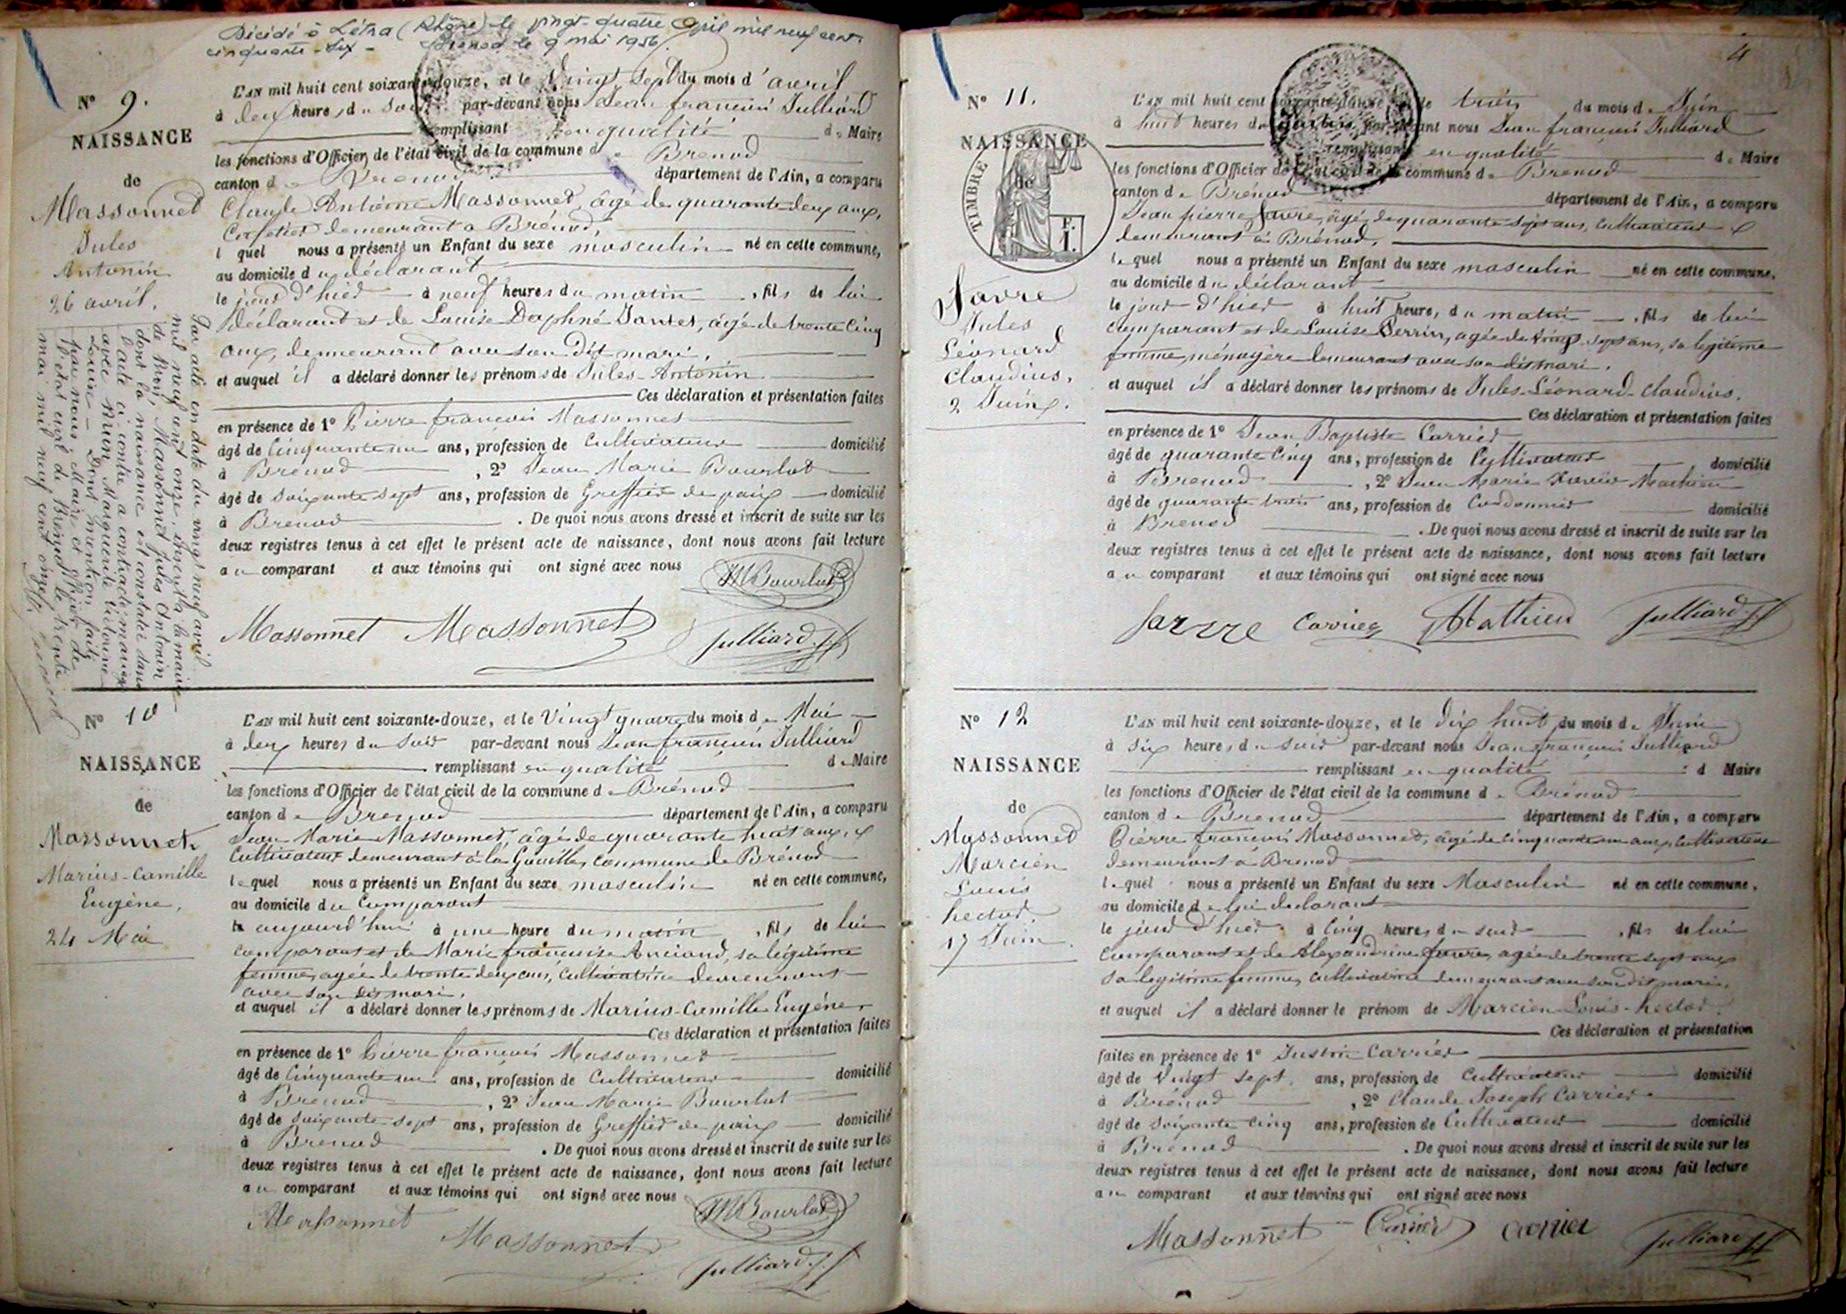 Décédé à Létra (Rhône) le vingt-quatre avril mil neuf cent
cinquante-six - Brénod le 9 mai 1956.
N° 9.
NAISSANCE
de
Massonnet
Jules
Antonin
26 avril.
L'AN mil huit cent soixante-douze, et le Vingt Sept du mois d'avril
à deux heures du soir par-devant nous Jean françois Julliard
remplissant en qualité de Maire
les fonctions d'Officier de l'état civil de la commune de Brenod
canton de Brenod département de l'Ain, a comparu
Claude Antoine Massonnet, âgé de quarante deux ans,
demeurant à Brénod,
lequel nous a présenté un Enfant du sexe masculin né en cette commune,
au domicile du déclarant
le jour d'hier à neuf heures du matin, fils de lui
déclarant et de Louise Daphné, âgée de trente cinq
ans, demeurant avec son dit mari,
et auquel il a déclaré donner les prénoms de Jules-Antonin
Ces déclaration et présentation faites
en présence de 1° Pierre françois Massonnet
âgé de Cinquante un ans, profession de Cultivateur domicilié
à Brenod, 2° Jean Marie Bourlot
âgé de soixante sept ans, profession de Greffier de paix domicilié
à Brenod. De quoi nous avons dressé et inscrit de suite sur les
deux registres tenus à cet effet le présent acte de naissance, dont nous avons fait lecture
au comparant et aux témoins qui ont signé avec nous
MBourlot
Massonnet Massonnet Julliard
Par acte en date du vingt neuf avril
mil neuf cent onze, inscrit à la mairie
de Massonnet Jules Antonin
dont la naissance est constatée dans
l'acte ci-contre a contracté mariage
avec Marguerite
Louise - Dont mention faite
par nous, Maire et officier de
l'état civil de Brénod le trente
mai mil neuf cent onze.
N° 10
NAISSANCE
de
Massonnet
Marius-Camille
Eugène,
24 Mai
L'AN mil huit cent soixante-douze, et le Vingt quatre du mois de Mai
à deux heures du soir par-devant nous Jean françois Julliard
remplissant en qualité de Maire
les fonctions d'Officier de l'état civil de la commune de Brénod
canton de Brenod département de l'Ain, a comparu
Jean Marie Massonnet, âgé de quarante huit ans,
Cultivateur demeurant à la commune de Brénod
lequel nous a présenté un Enfant du sexe masculin né en cette commune,
au domicile du Comparant
aujourd'hui à une heure du matin, fils de lui
comparant et de Marie françoise, sa légitime
femme, agée de trente deux ans, Cultivatrice demeurant
avec son dit mari.
et auquel il a déclaré donner les prénoms de Marius-Camille-Eugène
Ces déclaration et présentation faites
en présence de 1° Pierre françois Massonnet
âgé de Cinquante un ans, profession de Cultivateur domicilié
à Brenod, 2° Jean Marie Bourlot
âgé de soixante sept ans, profession de Greffier de paix domicilié
à Brenod. De quoi nous avons dressé et inscrit de suite sur les
deux registres tenus à cet effet le présent acte de naissance, dont nous avons fait lecture
au comparant et aux témoins qui ont signé avec nous
MBourlot
Massonnet
Massonnet
Julliard
4
N° 11.
NAISSANCE
de
TIMBRE
Favre
Jules
Léonard
Claudius,
2 Juin.
L'AN mil huit cent soixante-douze et le trois du mois de Juin
à huit heures du matin par-devant nous Jean françois Julliard
remplissant en qualité de Maire
les fonctions d'Officier de l'état civil de la commune de Brenod
canton de Brénod département de l'Ain, a comparu
Jean pierre Favre, âgé de quarante sept ans, Cultivateur
demeurant à Brénod,
lequel nous a présenté un Enfant du sexe masculin né en cette commune,
au domicile du déclarant
le jour d'hier à huit heures, du matin, fils de lui
Comparant et de Louise Perrin, agée de vingt-sept ans, sa légitime
femme, ménagère demeurant avec son dit mari.
et auquel il a déclaré donner les prénoms de Jules-Léonard-Claudius.
Ces déclaration et présentation faites
en présence de 1° Jean Baptiste Carrier
âgé de quarante Cinq ans, profession de Cultivateur domicilié
à Brenod, 2° Jean Marie Mathieu
âgé de quarante trois ans, profession de Cordonnier domicilié
à Brenod. De quoi nous avons dressé et inscrit de suite sur les
deux registres tenus à cet effet le présent acte de naissance, dont nous avons fait lecture
au comparant et aux témoins qui ont signé avec nous
Favre Carrier Mathieu Julliard
N° 12
NAISSANCE
de
Massonnet
Marcien
Louis
hector.
17 Juin.
L'AN mil huit cent soixante-douze, et le dix huit du mois de Juin
à six heures du soir par-devant nous Jean françois Julliard
remplissant en qualité d Maire
les fonctions d'Officier de l'état civil de la commune de Brénod
canton de Brenod département de l'Ain, a comparu
Pierre françois Massonnet, âgé de Cinquante un ans, Cultivateur
demeurant à Brenod
lequel nous a présenté un Enfant du sexe Masculin né en cette commune,
au domicile de lui déclarant
le jour d'hier à Cinq heures du soir, fils de lui
Comparant et de Alexandrine Favre, agée de trente sept ans
sa légitime femme, cultivatrice demeurant avec son dit mari,
et auquel il a déclaré donner le prénom de Marcien-Louis-hector.
Ces déclaration et présentation
faites en présence de 1° Justin Carrier
âgé de Vingt Sept ans, profession de Cultivateur domicilié
à Brénod, 2° Claude Joseph Carrier
âgé de Soixante Cinq ans, profession de Cultivateur domicilié
à Brénod. De quoi nous avons dressé et inscrit de suite sur les
deux registres tenus à cet effet le présent acte de naissance, dont nous avons fait lecture
au comparant et aux témoins qui ont signé avec nous
Massonnet Carrier Carrier Julliard